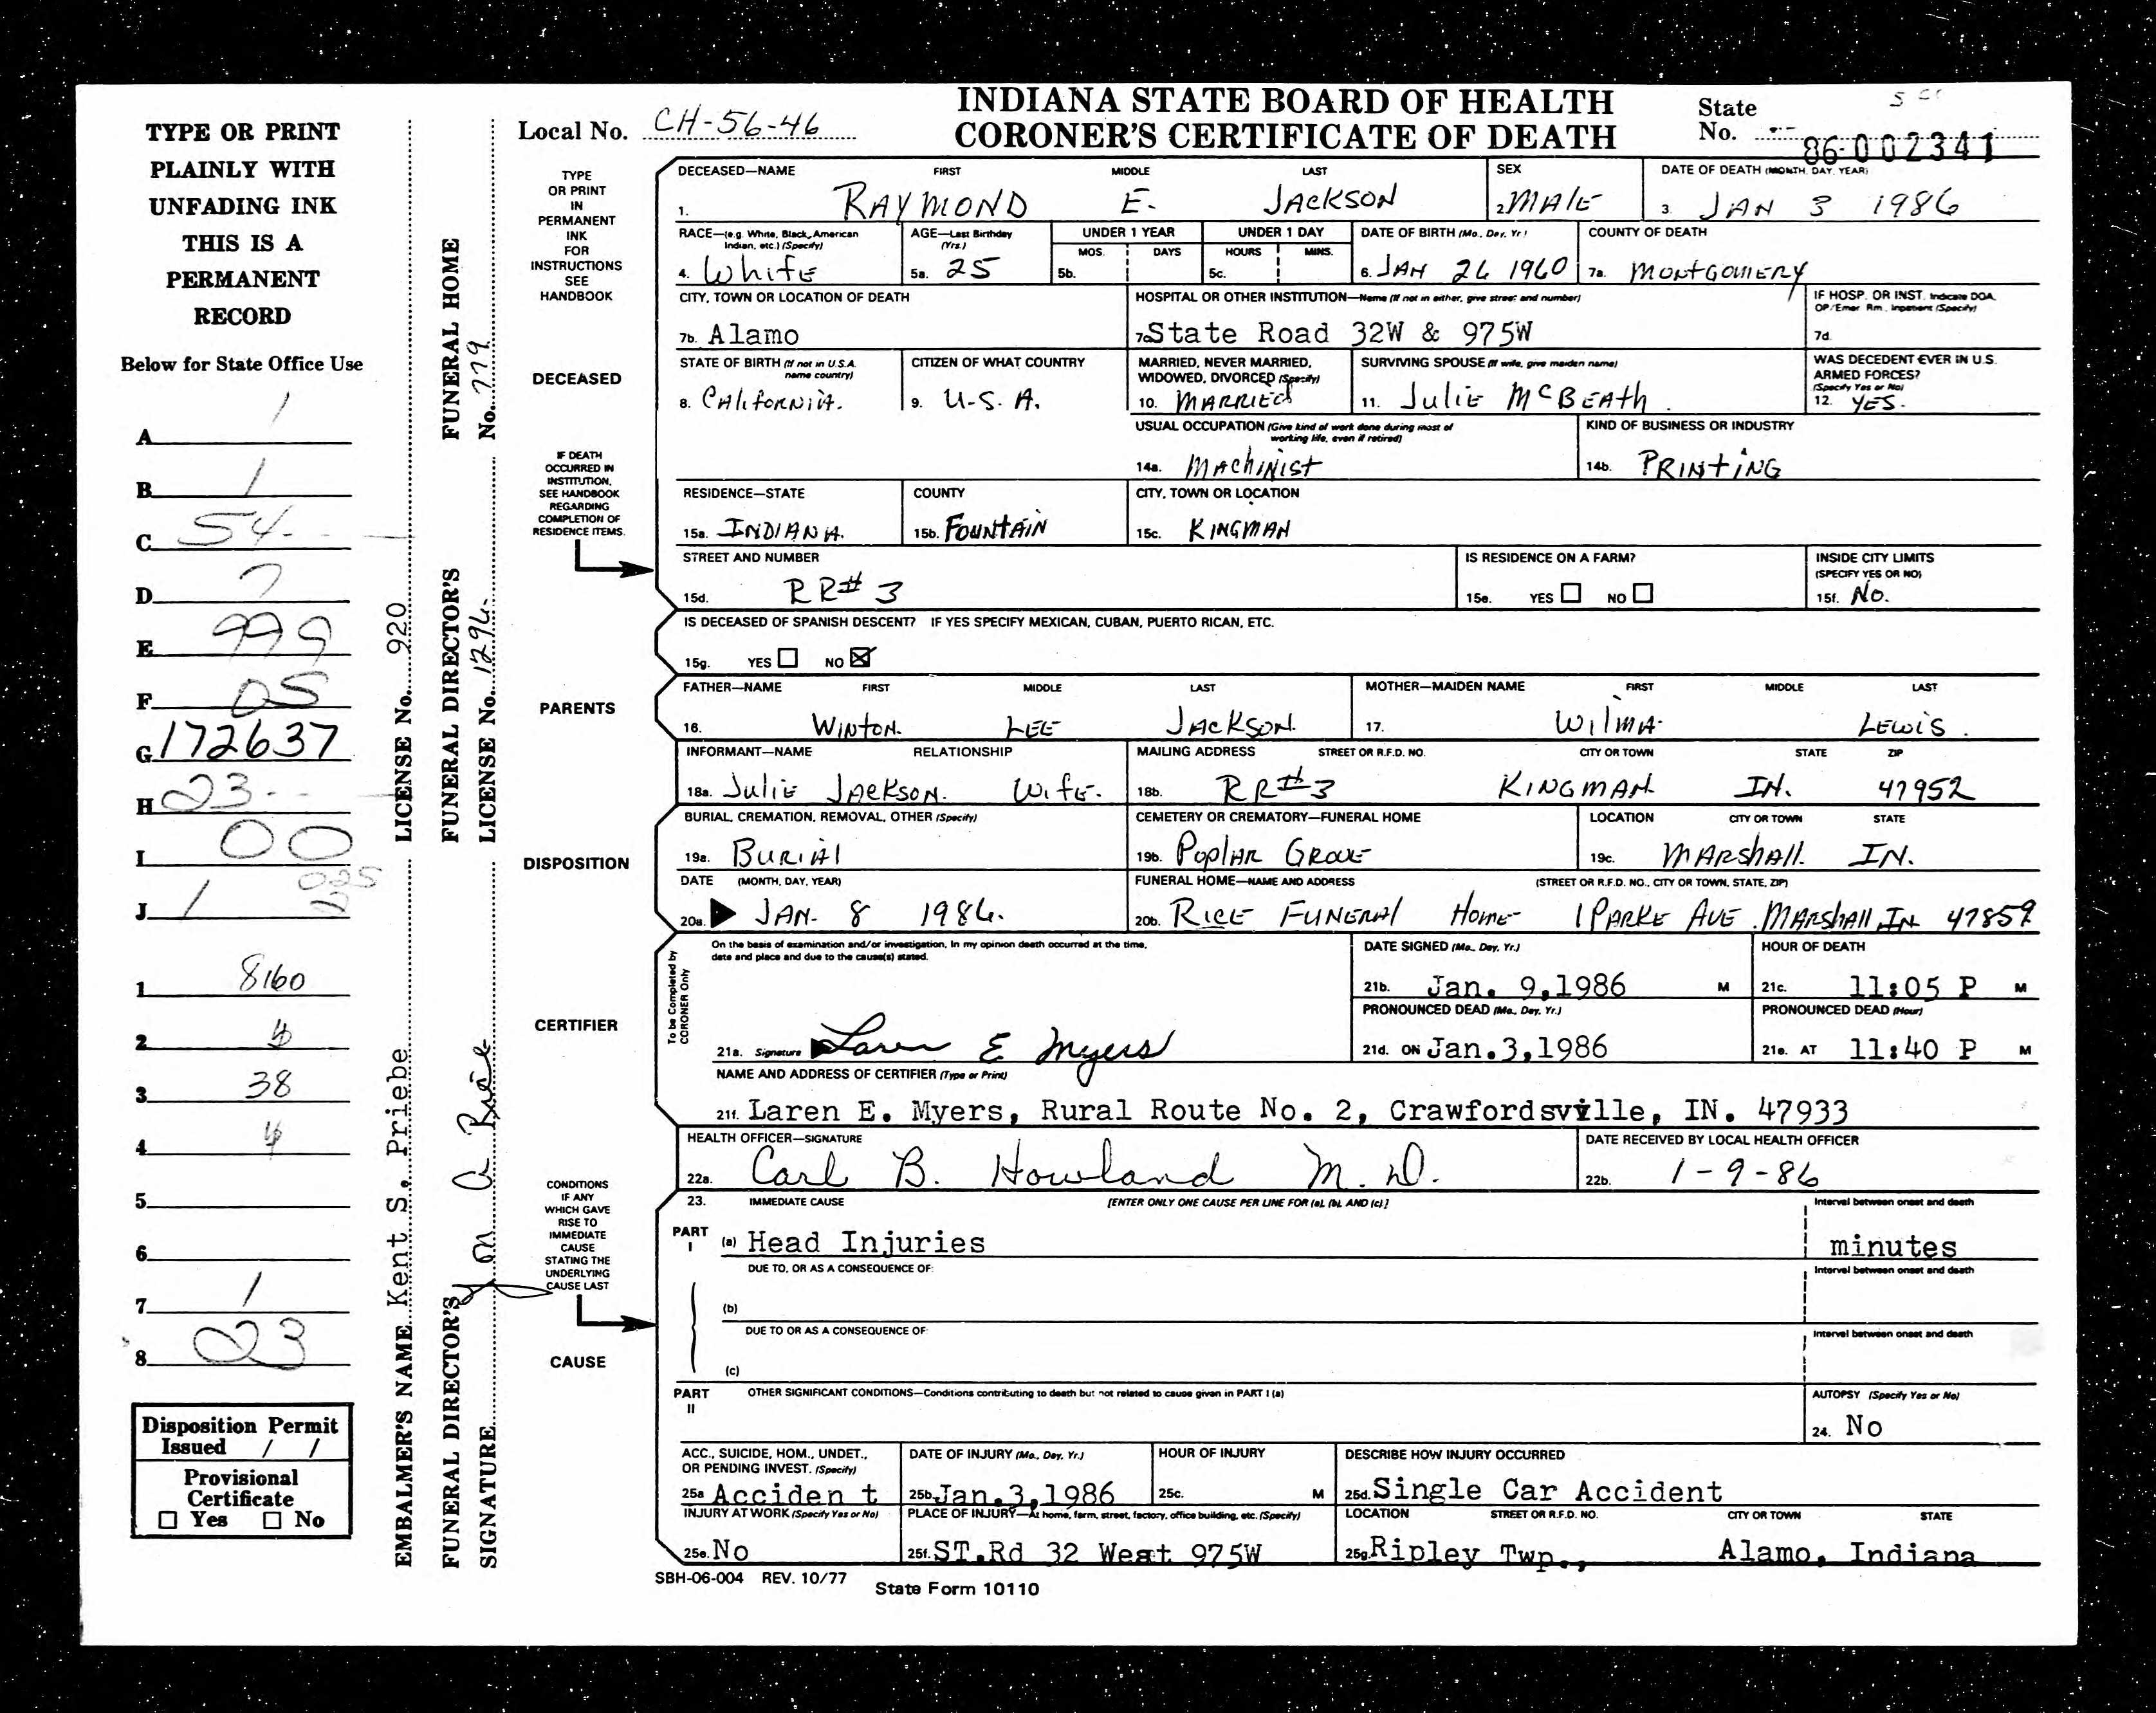 INDIANA STATE BOARD OF HEALTH
CORONER'S CERTIFICATE OF DEATH
Local No. CH-56-46
State No. 86-002341
TYPE OR PRINT
PLAINLY WITH
UNFADING INK
THIS IS A
PERMANENT
RECORD
Below for State Office Use
A 1
B 1
C 54
D 7
E 999
F 05
G 172637
H 03
I 00
J 1 025
1 8160
2
3 38
4
5
6
7 1
8 03
Disposition Permit
Issued / /
Provisional
Certificate
☐ Yes ☐ No
EMBALMER'S NAME Kent S. Priebe LICENSE No. 920
FUNERAL DIRECTOR'S SIGNATURE
FUNERAL DIRECTOR'S LICENSE No. 1296
FUNERAL HOME No. 779
TYPE
OR PRINT
IN
PERMANENT
INK
FOR
INSTRUCTIONS
SEE
HANDBOOK
DECEASED
IF DEATH
OCCURRED IN
INSTITUTION,
SEE HANDBOOK
REGARDING
COMPLETION OF
RESIDENCE ITEMS.
PARENTS
DISPOSITION
CERTIFIER
CONDITIONS
IF ANY
WHICH GAVE
RISE TO
IMMEDIATE
CAUSE
STATING THE
UNDERLYING
CAUSE LAST
CAUSE
DECEASED—NAME FIRST MIDDLE LAST
1. RAYMOND E. JACKSON
SEX
2. MALE
DATE OF DEATH (MONTH, DAY, YEAR)
3. JAN 3 1986
RACE—(e.g. White, Black, American Indian, etc.) (Specify)
4. White
AGE—Last Birthday (Yrs.)
5a. 25
UNDER 1 YEAR
MOS. DAYS
5b.
UNDER 1 DAY
HOURS MINS.
5c.
DATE OF BIRTH (Mo., Day, Yr.)
6. JAN 26 1960
COUNTY OF DEATH
7a. MONTGOMERY
CITY, TOWN OR LOCATION OF DEATH
7b. Alamo
HOSPITAL OR OTHER INSTITUTION—Name (If not in either, give street and number)
7c State Road 32W & 975W
IF HOSP. OR INST. Indicate DOA, OP/Emer. Rm., Inpatient (Specify)
7d.
STATE OF BIRTH (If not in U.S.A. name country)
8. CALIFORNIA.
CITIZEN OF WHAT COUNTRY
9. U.S.A.
MARRIED, NEVER MARRIED, WIDOWED, DIVORCED (Specify)
10. MARRIED
SURVIVING SPOUSE (If wife, give maiden name)
11. Julie McBEATH.
WAS DECEDENT EVER IN U.S. ARMED FORCES? (Specify Yes or No)
12. YES.
USUAL OCCUPATION (Give kind of work done during most of working life, even if retired)
14a. MACHINIST
KIND OF BUSINESS OR INDUSTRY
14b. PRINTING
RESIDENCE—STATE
15a. INDIANA.
COUNTY
15b. FOUNTAIN
CITY, TOWN OR LOCATION
15c. KINGMAN
STREET AND NUMBER
15d. RR# 3
IS RESIDENCE ON A FARM?
15e. YES ☐ NO ☐
INSIDE CITY LIMITS (SPECIFY YES OR NO)
15f. No.
IS DECEASED OF SPANISH DESCENT? IF YES SPECIFY MEXICAN, CUBAN, PUERTO RICAN, ETC.
15g. YES ☐ NO ☒
FATHER—NAME FIRST MIDDLE LAST
16. WINTON. LEE JACKSON.
MOTHER—MAIDEN NAME FIRST MIDDLE LAST
17. WILMA LEWIS.
INFORMANT—NAME RELATIONSHIP
18a. Julie JACKSON. Wife.
MAILING ADDRESS STREET OR R.F.D. NO. CITY OR TOWN STATE ZIP
18b. RR#3 KINGMAN IN. 47952
BURIAL, CREMATION, REMOVAL, OTHER (Specify)
19a. BURIAL
CEMETERY OR CREMATORY—FUNERAL HOME
19b. POPLAR GROVE
LOCATION CITY OR TOWN STATE
19c. MARSHALL. IN.
DATE (MONTH, DAY, YEAR)
20a. JAN. 8 1986.
FUNERAL HOME—NAME AND ADDRESS (STREET OR R.F.D. NO., CITY OR TOWN, STATE, ZIP)
20b. RICE FUNERAL HOME 1 PARKE AVE. MARSHALL, IN 47859
To be Completed by CORONER Only
On the basis of examination and/or investigation, in my opinion death occurred at the time, date and place and due to the cause(s) stated.
21a. Signature Laren E Myers
DATE SIGNED (Mo., Day, Yr.)
21b. Jan. 9,1986 M
HOUR OF DEATH
21c. 11:05 P M
PRONOUNCED DEAD (Mo., Day, Yr.)
21d. ON Jan.3,1986
PRONOUNCED DEAD (Hour)
21e. AT 11:40 P M
NAME AND ADDRESS OF CERTIFIER (Type or Print)
21f. Laren E. Myers, Rural Route No. 2, Crawfordsville, IN. 47933
HEALTH OFFICER—SIGNATURE
22a. Carl B. Howland M.D.
DATE RECEIVED BY LOCAL HEALTH OFFICER
22b. 1-9-86
23. IMMEDIATE CAUSE [ENTER ONLY ONE CAUSE PER LINE FOR (a), (b), AND (c).] Interval between onset and death
PART I (a) Head Injuries minutes
DUE TO, OR AS A CONSEQUENCE OF: Interval between onset and death
(b)
DUE TO OR AS A CONSEQUENCE OF: Interval between onset and death
(c)
PART II OTHER SIGNIFICANT CONDITIONS—Conditions contributing to death but not related to cause given in PART I (a)
AUTOPSY (Specify Yes or No)
24. No
ACC., SUICIDE, HOM., UNDET., OR PENDING INVEST. (Specify)
25a Acciden t
DATE OF INJURY (Mo., Day, Yr.)
25b. Jan.3,1986
HOUR OF INJURY
25c. M
DESCRIBE HOW INJURY OCCURRED
25d. Single Car Accident
INJURY AT WORK (Specify Yes or No)
25e. No
PLACE OF INJURY—At home, farm, street, factory, office building, etc. (Specify)
25f. ST.Rd 32 West 975W
LOCATION STREET OR R.F.D. NO. CITY OR TOWN STATE
25g. Ripley Twp., Alamo, Indiana
SBH-06-004 REV. 10/77 State Form 10110